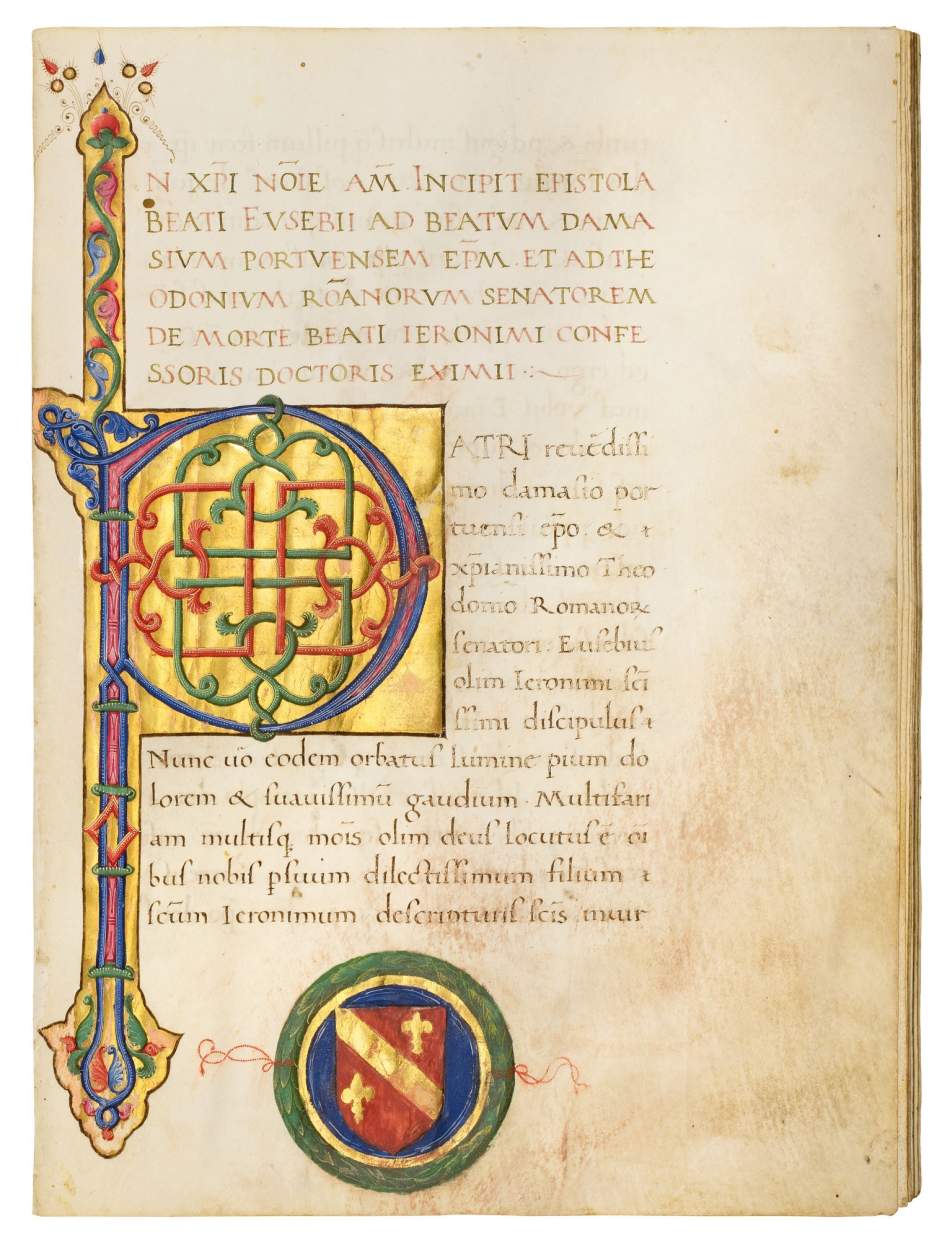 N XP̄I NŌIE AM̄. INCIPIT EPISTOLA
BEATI EVSEBII AD BEATVM DAMA
SIVM PORTVENSEM EP̄M. ET AD THE
ODONIVM RŌANORVM SENATOREM
DE MORTE BEATI IERONIMI CONFE
SSORIS DOCTORIS EXIMII
PATRI reuēdissi
mo damasio por
tuensi ep̄o & ⁊
xp̄ianissimo Theo
donio Romanoꝝ
senatori. Eusebius
olim Ieronimi sc̄i
ssimi discipulus ⁊
Nunc uō eodem orbatus lumine pium do
lorem & suauissimū gaudium. Multifari
am multisq; mōis olim deus locutus ē oī
bus nobis ꝑ suum dilectissimum filium ⁊
sc̄um Ieronimum de scripturis sc̄is